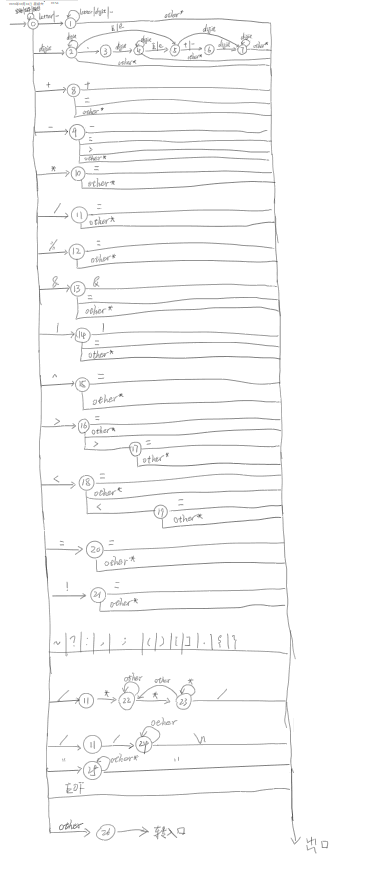 letter|_ letter|digit|_ other*
0 1
E|e
digit digit . digit digit E|e +|- digit digit other*
2 3 4 5 6 7
other* other*
+ 8 +
=
other*
- 9 -
=
>
other*
* 10 =
other*
/ 11 =
other*
% 12 =
other*
& 13 &
=
other*
| 14 |
=
other*
^ 15 =
other*
> 16 =
other*
> 17 =
other*
< 18 =
other*
< 19 =
other*
= 20 =
other*
! 21 =
other*
~ | ? | : | , | ; | ( | ) | [ | ] | . | { | }
other other *
/ 11 * 22 * 23 /
other
/ 11 / 24 \n
" 25 other* "
EOF
other 26 转入口
出口